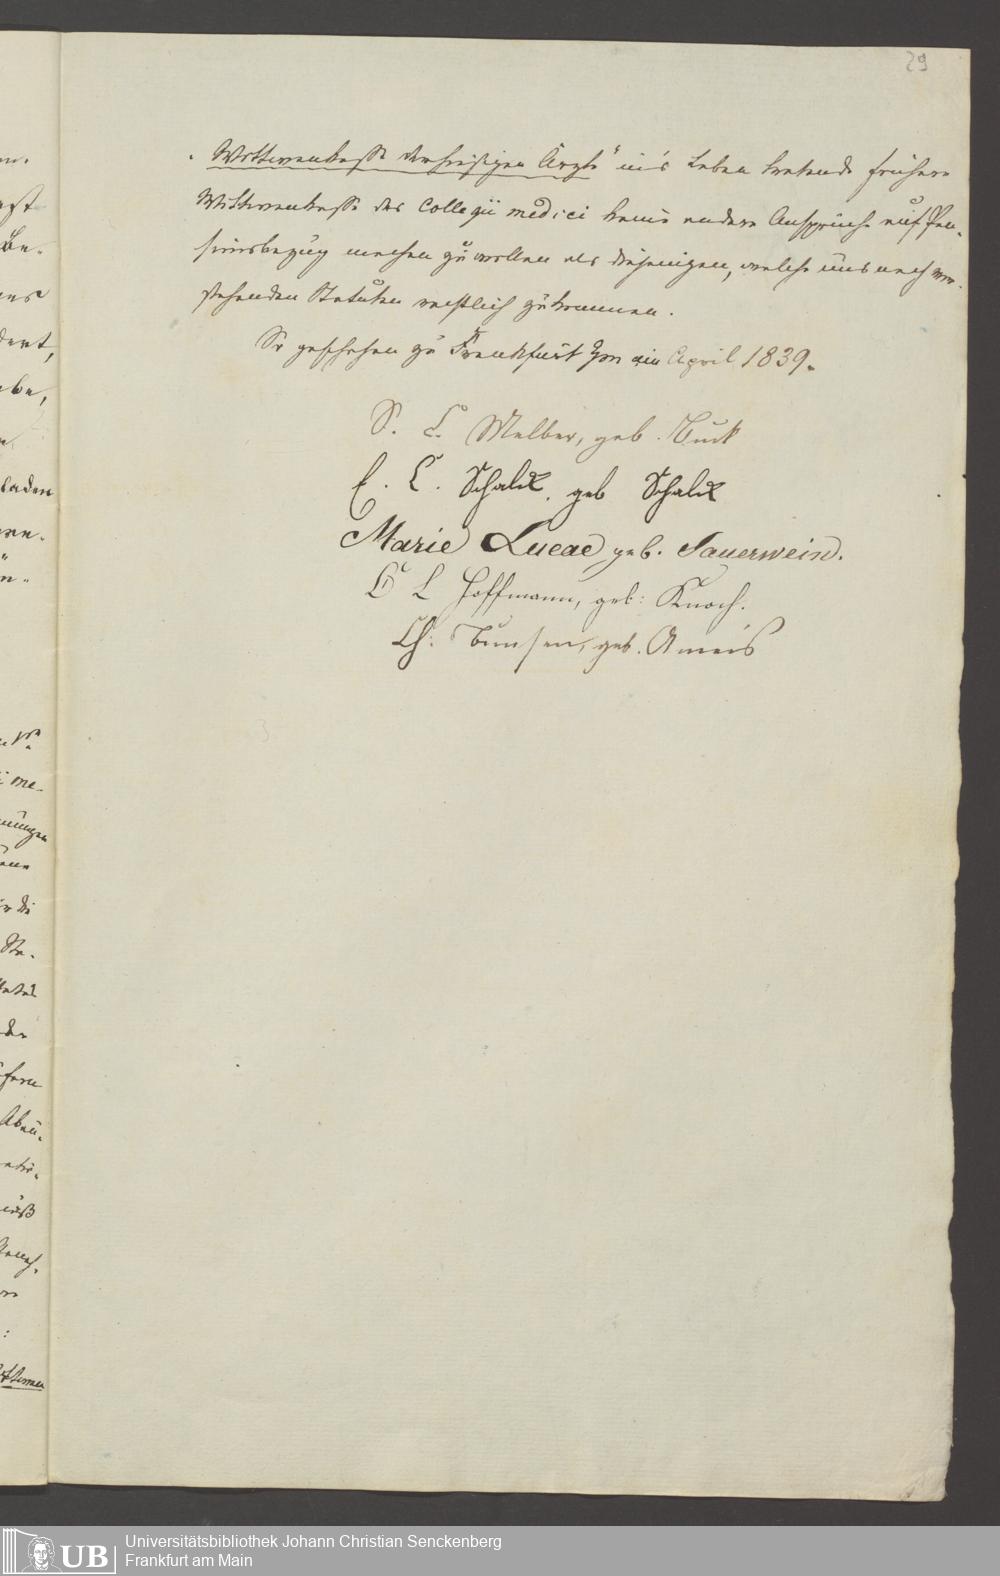 29
„Wittwenkasse der hiesigen Ärzte“ in's Leben tretende frühere
Wittwenkasse des Collegii medici keine andere Ansprüche auf Pen-
sionsbezug machen zu wollen als diejenigen, welche uns nach vor-
stehenden Statuten rechtlich zukommen.
So geschehen zu Frankfurt a/m im April 1839.
S. C. Melber, geb. Buck
E. C. Schalck. geb Schalck
Marie Lucae geb. Sauerwein.
C L Hoffmann, geb: Knoch.
Ch: Bunsen, geb. Ameis
UB
Universitätsbibliothek Johann Christian Senckenberg
Frankfurt am Main